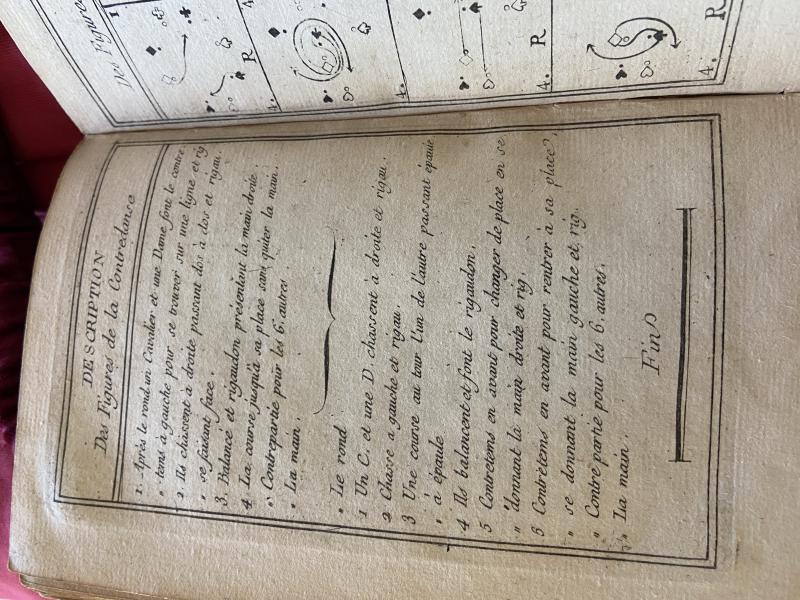 DESCRIPTION
Des Figures de la Contredanse
1. Après le rond un Cavalier et une Dame font le contre
" tems à gauche pour se trouver sur une ligne et rig
2. Ils chassent à droite passant dos à dos et rigau.
" se faisant face.
3. Balancé et rigaudon présentant la main droite.
4. La course jusqu'à sa place sans quiter la main.
" Contrepartie pour les 6. autres.
" La main.
" Le rond
1 Un C. et une D. chassent à droite et rigau.
2 Chasse a gauche et rigau.
3 Une course au tour l'un de l'autre passant épaule
" à épaule
4 Ils balancent et font le rigaudon.
5 Contretems en avant pour changer de place en se
" donnant la main droite et rig.
6 Contretems en avant pour rentrer à sa place,
" se donnant la main gauche et rig.
" Contre partie pour les 6. autres.
" La main.
Fin
Des Figures
1
4.
R
4.
4.
R
4.
R